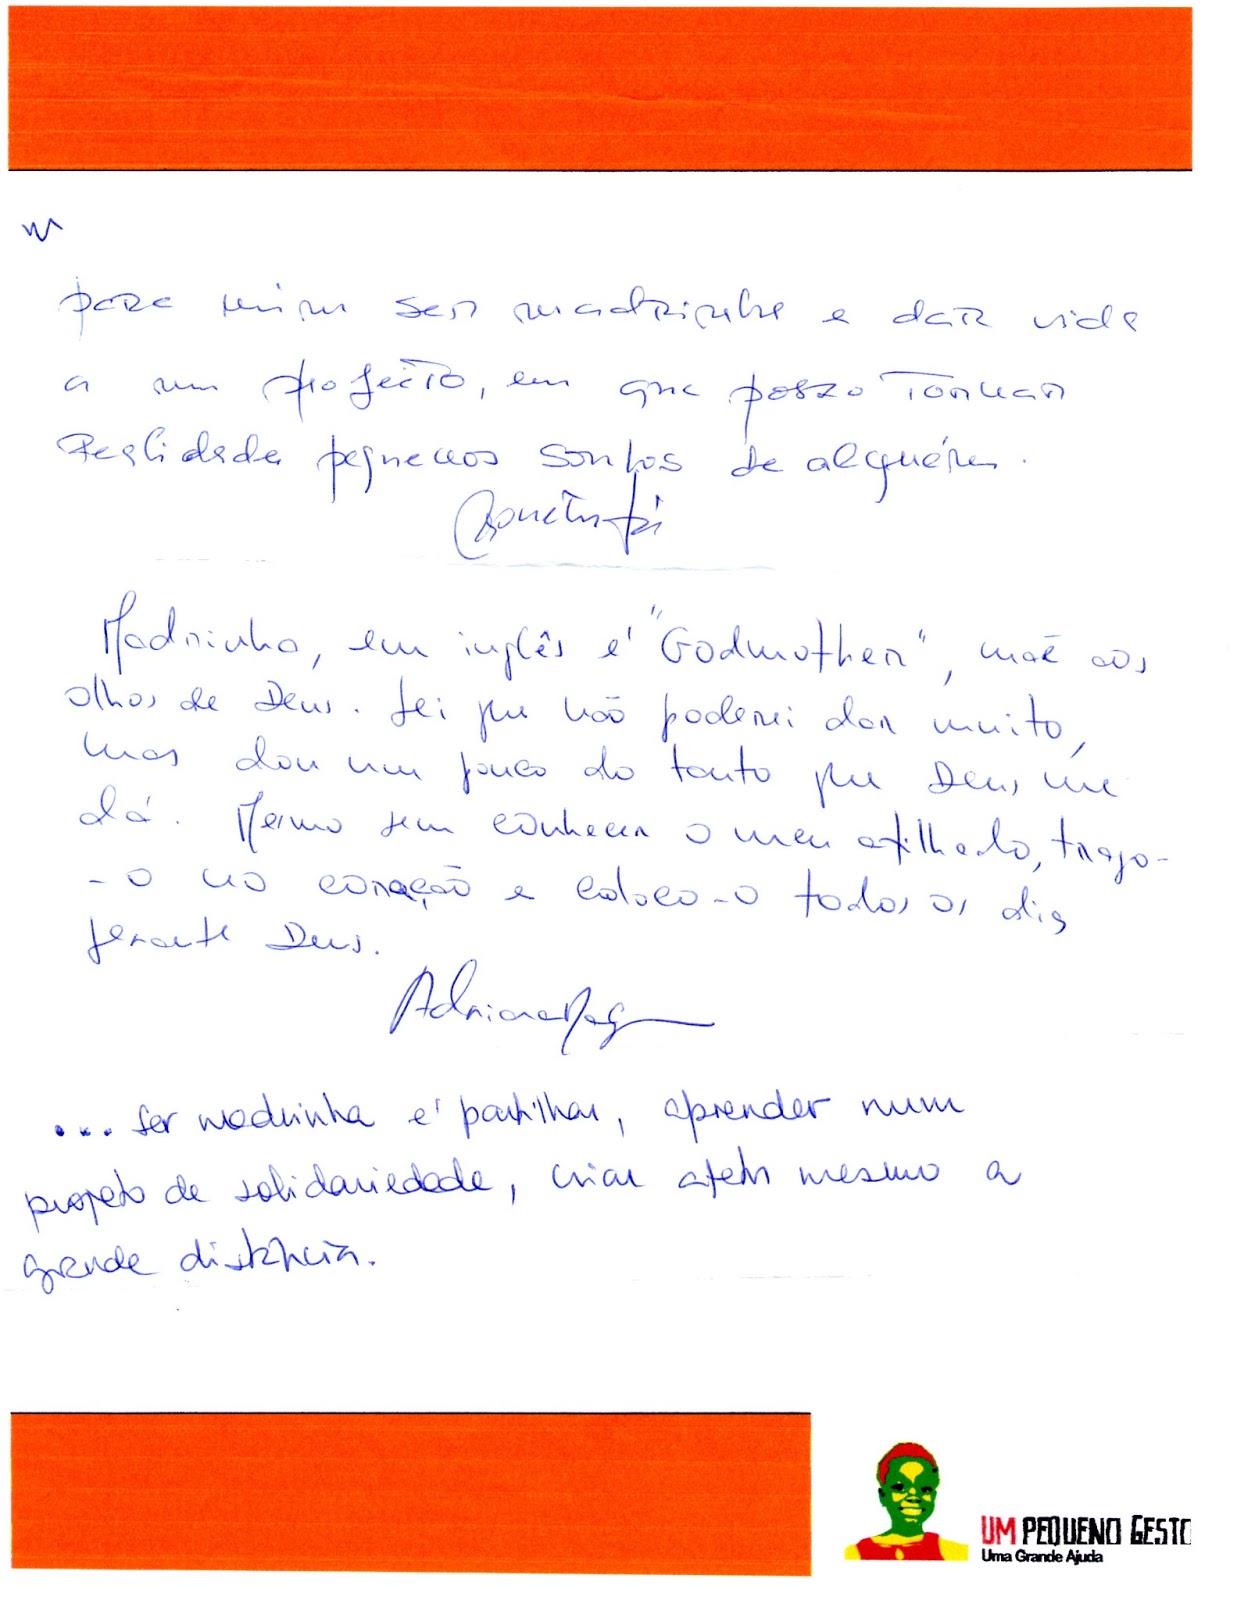 para mim ser madrinha e dar vida
a um projecto, em que posso Tornar
Realidade pequenos sonhos de alguém.
Madrinha, em inglês é "Godmother", mãe aos
olhos de Deus. Sei que não poderei dar muito,
mas dou um pouco do tanto que Deus me
dá. Mesmo sem conhecer o meu afilhado, trago-
-o no coração e coloco-o todos os dias
perante Deus.
Adriana
... ser madrinha é partilhar, aprender num
projeto de solidariedade, criar afeto mesmo a
grande distância.
UM PEQUENO GESTO
Uma Grande Ajuda